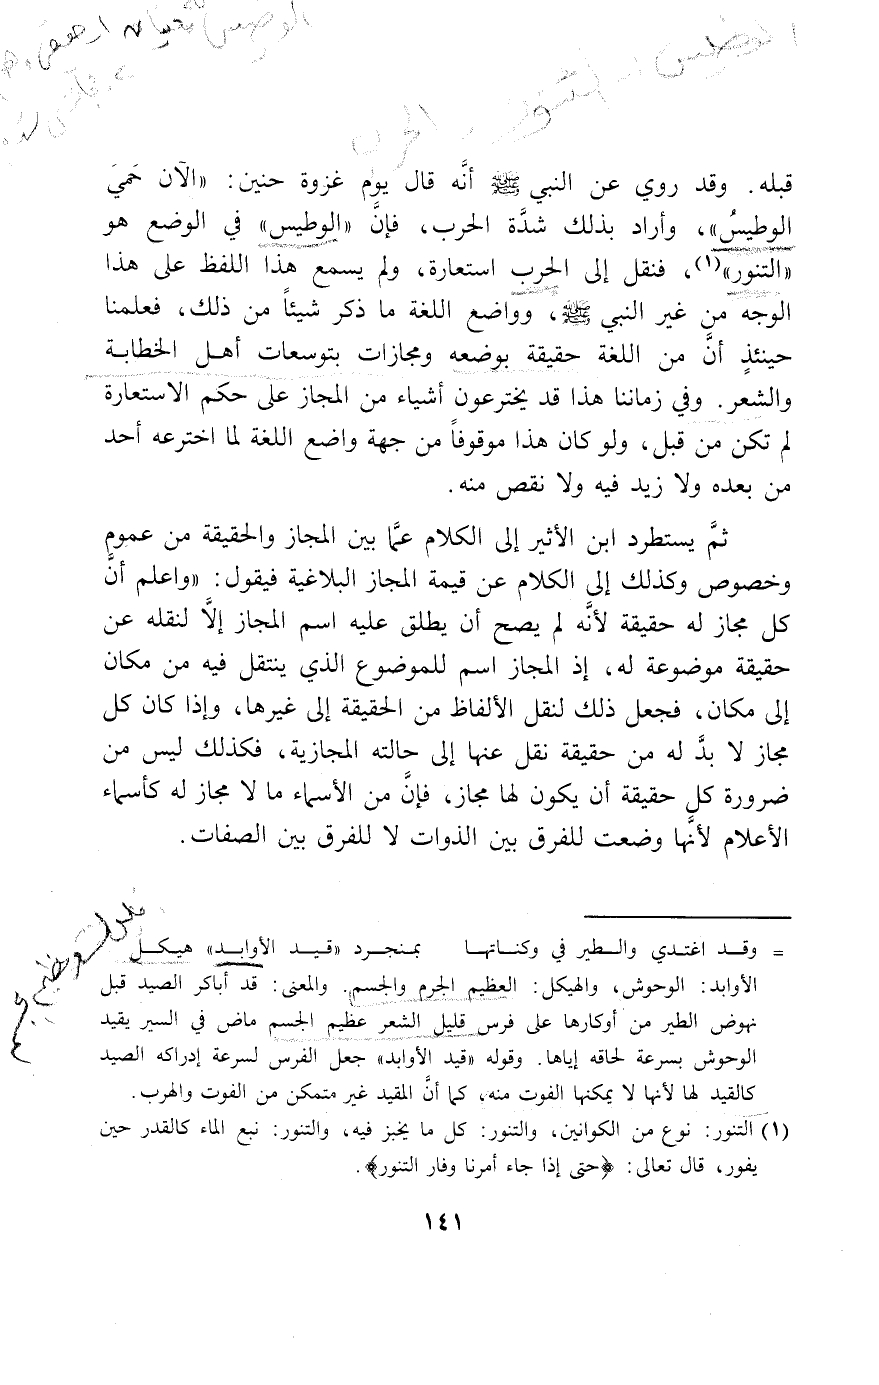 الوطيس التنور الحرب
قبله. وقد روي عن النبي ﷺ أنَّه قال يوم غزوة حنين: «الآن حَمِيَ
الوطيسُ»، وأراد بذلك شدَّة الحرب، فإنَّ «الوطيس» في الوضع هو
«التنور»(١)، فنقل إلى الحرب استعارة، ولم يسمع هذا اللفظ على هذا
الوجه من غير النبي ﷺ، وواضع اللغة ما ذكر شيئاً من ذلك، فعلمنا
حينئذٍ أنَّ من اللغة حقيقة بوضعه ومجازات بتوسعات أهل الخطابة
والشعر. وفي زماننا هذا قد يخترعون أشياء من المجاز على حكم الاستعارة
لم تكن من قبل، ولو كان هذا موقوفاً من جهة واضع اللغة لما اخترعه أحد
من بعده ولا زيد فيه ولا نقص منه.
ثمَّ يستطرد ابن الأثير إلى الكلام عمَّا بين المجاز والحقيقة من عموم
وخصوص وكذلك إلى الكلام عن قيمة المجاز البلاغية فيقول: «واعلم أنَّ
كل مجاز له حقيقة لأنَّه لم يصح أن يطلق عليه اسم المجاز إلَّا لنقله عن
حقيقة موضوعة له، إذ المجاز اسم للموضوع الذي ينتقل فيه من مكان
إلى مكان، فجعل ذلك لنقل الألفاظ من الحقيقة إلى غيرها، وإذا كان كل
مجاز لا بدَّ له من حقيقة نقل عنها إلى حالته المجازية، فكذلك ليس من
ضرورة كل حقيقة أن يكون لها مجاز، فإنَّ من الأسماء ما لا مجاز له كأسماء
الأعلام لأنَّها وضعت للفرق بين الذوات لا للفرق بين الصفات.
= وقد اغتدي والطير في وكناتها بمنجرد «قيد الأوابد» هيكل
الأوابد: الوحوش، والهيكل: العظيم الجرم والجسم. والمعنى: قد أباكر الصيد قبل
نهوض الطير من أوكارها على فرس قليل الشعر عظيم الجسم ماض في السير يقيد
الوحوش بسرعة لحاقه إياها. وقوله «قيد الأوابد» جعل الفرس لسرعة إدراكه الصيد
كالقيد لها لأنها لا يمكنها الفوت منه، كما أنَّ المقيد غير متمكن من الفوت والهرب.
(١) التنور: نوع من الكوانين، والتنور: كل ما يخبز فيه، والتنور: نبع الماء كالقدر حين
يفور، قال تعالى: ﴿حتى إذا جاء أمرنا وفار التنور﴾.
١٤١